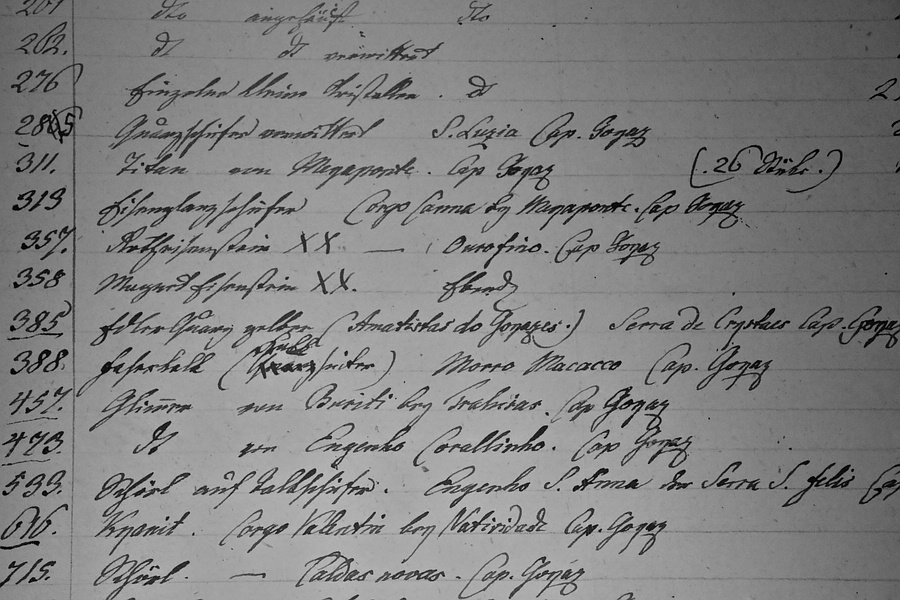 201 dto angehäuft dto
202. dt dt verwittert
276 Einzelne kleine Kristallen. dt
285 Quarzschiefer verwittert S. Luzia Cap. Goyaz
311. Titan von Meyaponte. Cap Goyaz (.26 Stüke.)
313 Eisenglanzschiefer Corgo Canna by Meyaponte. Cap Goyaz
357. Rotheisenstein XX — Ourofino. Cap Goyaz
358 Magnet Eisenstein XX. Ebend
385 Edler Quarz gelber (Amatistas do Goyazes.) Serra de Crystaes Cap. Goyaz
388. Faserkalk ( ) Morro Macacco Cap. Goyaz
457. Glimmer von Buriti bey Trahiras. Cap Goyaz
473. dt von Engenho Corallinho. Cap Goyaz
533. Schörl auf Talkschiefer. Engenho S. Anna der Serra S. Felis Cap
616. Kyanit. Corgo Valentin bey Natividade Cap. Goyaz
715. Schörl. — Caldas novas. Cap. Goyaz